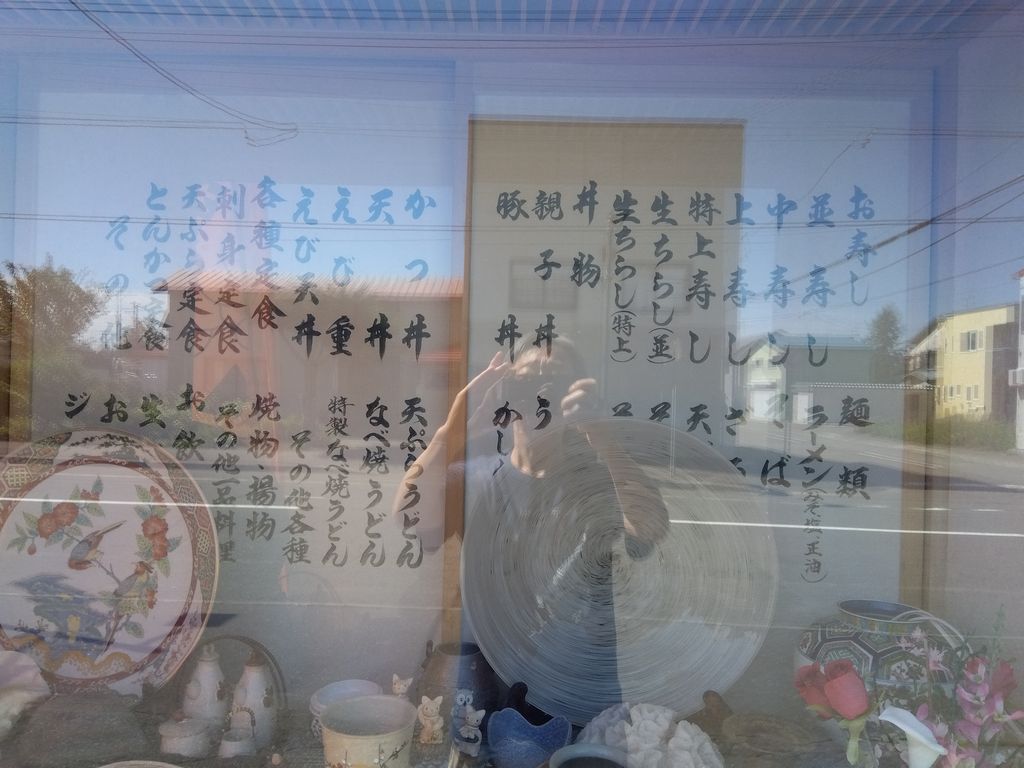 お寿し
並寿し
中寿し
上寿し
特上寿し
生ちらし(並)
生ちらし(特上)
丼物
親子丼
豚丼
かつ丼
天丼
えび重
えび天丼
各種定食
刺身定食
天ぷら定食
とんかつ定食
その他
麺類
ラーメン(みそ・塩・正油)
そば
ざる
天
そ
そ
う
かし
天ぷらうどん
なべ焼うどん
特製なべ焼うどん
その他各種
焼物、揚物
その他一品料理
お飲
生
お
ジ